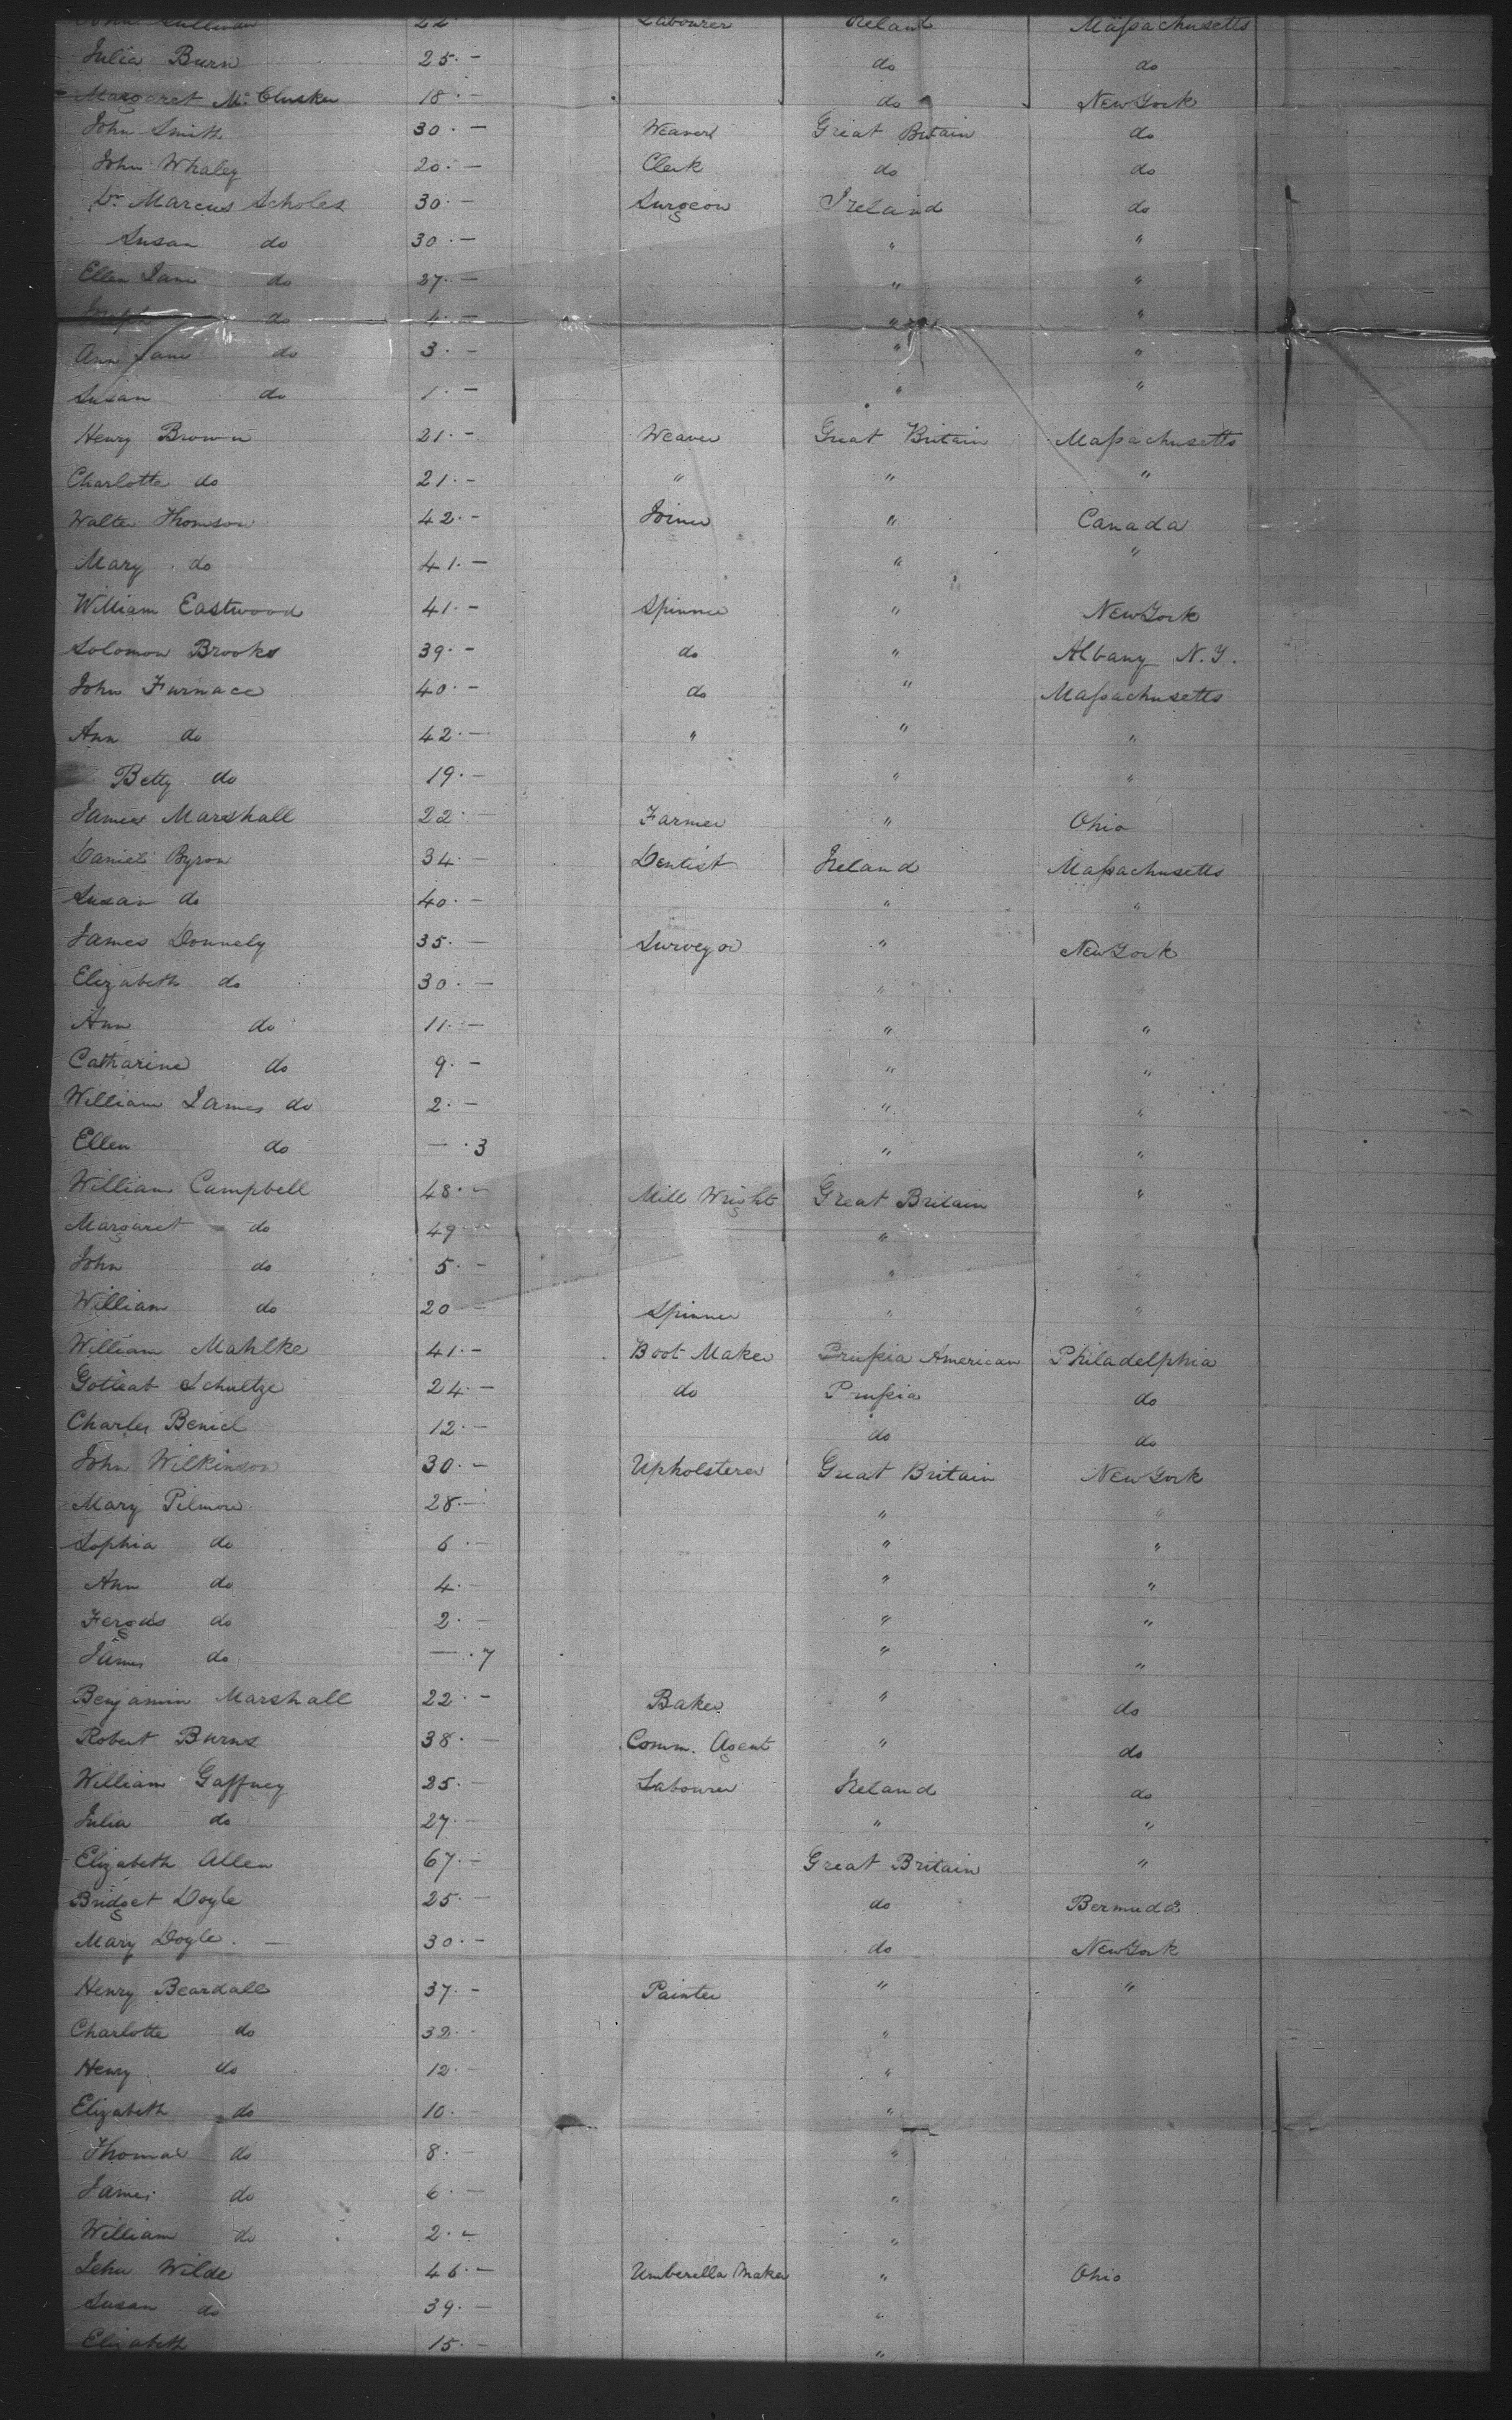 John Sullivan 22. Labourer Ireland Maſsachusetts
Julia Burn 25. - do do
Margaret Mc Clusker 18. - do New York
John Smith 30. - Weaver Great Britain do
John Whaley 20. - Clerk do do
Dr. Marcus Scholes 30. - Surgeon Ireland do
Susan do 30. - " "
Ellen Jane do 27. - " "
Joseph do 4. - " "
Ann Jane do 3. - " "
Susan do 1. - " "
Henry Brown 21. - Weaver Great Britain Maſsachusetts
Charlotte do 21. - " " "
Walter Thomson 42. - Joiner " Canada
Mary do 41. - " "
William Eastwood 41. - Spinner " New York
Solomon Brooks 39. - do " Albany N.Y.
John Furnace 40. - do " Maſsachusetts
Ann do 42. - " " "
Betty do 19. - " "
James Marshall 22. - Farmer " Ohio
Daniel Byron 34. - Dentist Ireland Maſsachusetts
Susan do 40. - " "
James Donnely 35. - Surveyor " New York
Elizabeth do 30. - " "
Ann do 11. - " "
Catharine do 9. - " "
William James do 2. - " "
Ellen do - . 3 " "
William Campbell 48. - Mill Wright Great Britain "
Margaret do 49 " "
John do 5. - " "
William do 20 - Spinner " "
William Mahlke 41. - Boot Maker Pruſsia American Philadelphia
Gotleab Schultze 24. - do Pruſsia do
Charles Benicl 12. - do do
John Wilkinson 30. - Upholsterer Great Britain New York
Mary Pilmore 28. - " "
Sophia do 6. - " "
Ann do 4. - " "
Fergus do 2. - " "
James do - . 7 " "
Benjamin Marshall 22. - Baker " do
Robert Burns 38. - Comm. Agent " do
William Gaffney 25. - Labourer Ireland do
Julia do 27. - " "
Elizabeth Allen 67. - Great Britain "
Bridget Doyle 25. - do Bermuda
Mary Doyle. - 30. - do New York
Henry Beardall 37. - Painter " "
Charlotte do 32. - "
Henry do 12. - "
Elizabeth do 10. - "
Thomas do 8. - "
James do 6. - "
William do 2. - "
John Wilde 46. - Umberilla Maker " Ohio
Susan do 39. - "
Elizabeth 15. - "